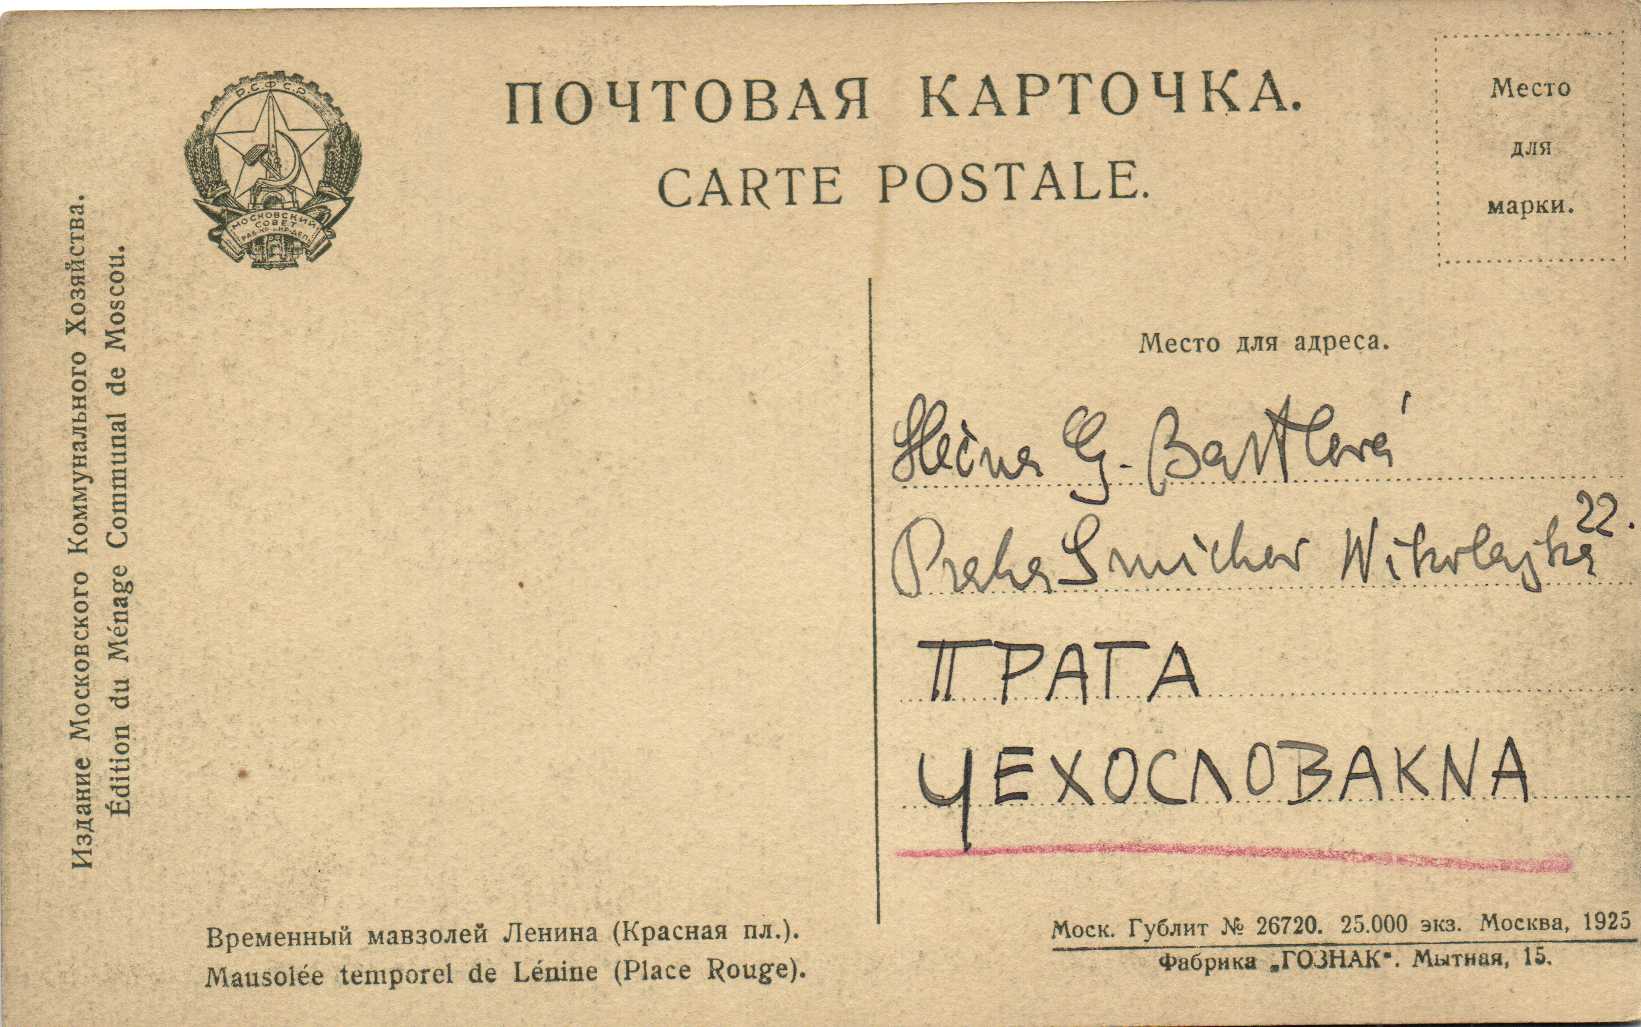 ПОЧТОВАЯ КАРТОЧКА.
CARTE POSTALE.
Место
для
марки.
Р.С.Ф.С.Р.
МОСКОВСКИЙ
СОВЕТ
РАБ. КР. и КР. ДЕП.
Издание Московского Коммунального Хозяйства.
Édition du Ménage Communal de Moscou.
Место для адреса.
Slečna G. Bartlová
Praha Smichov Nikolajka 22.
ПРАГА
ЧЕХОСЛОВАКNА
Временный мавзолей Ленина (Красная пл.).
Mausolée temporel de Lénine (Place Rouge).
Моск. Гублит № 26720. 25.000 экз. Москва, 1925
Фабрика „ГОЗНАК“. Мытная, 15.